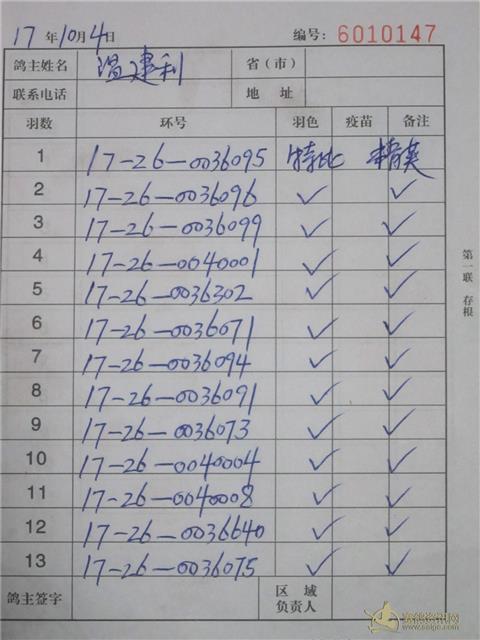 17年10月4日 编号: 6010147
鸽主姓名 温建利 省（市）
联系电话 地址
羽数 环号 羽色 疫苗 备注
1 17-26-0036095 特比 精英
2 17-26-0036096 ✓ ✓
3 17-26-0036099 ✓ ✓
4 17-26-0040001 ✓ ✓
5 17-26-0036302 ✓ ✓
6 17-26-0036071 ✓ ✓
7 17-26-0036094 ✓ ✓
8 17-26-0036091 ✓ ✓
9 17-26-0036073 ✓ ✓
10 17-26-0040004 ✓ ✓
11 17-26-0040008 ✓ ✓
12 17-26-0036640 ✓ ✓
13 17-26-0036075 ✓ ✓
鸽主签字 区域负责人
第一联 存根